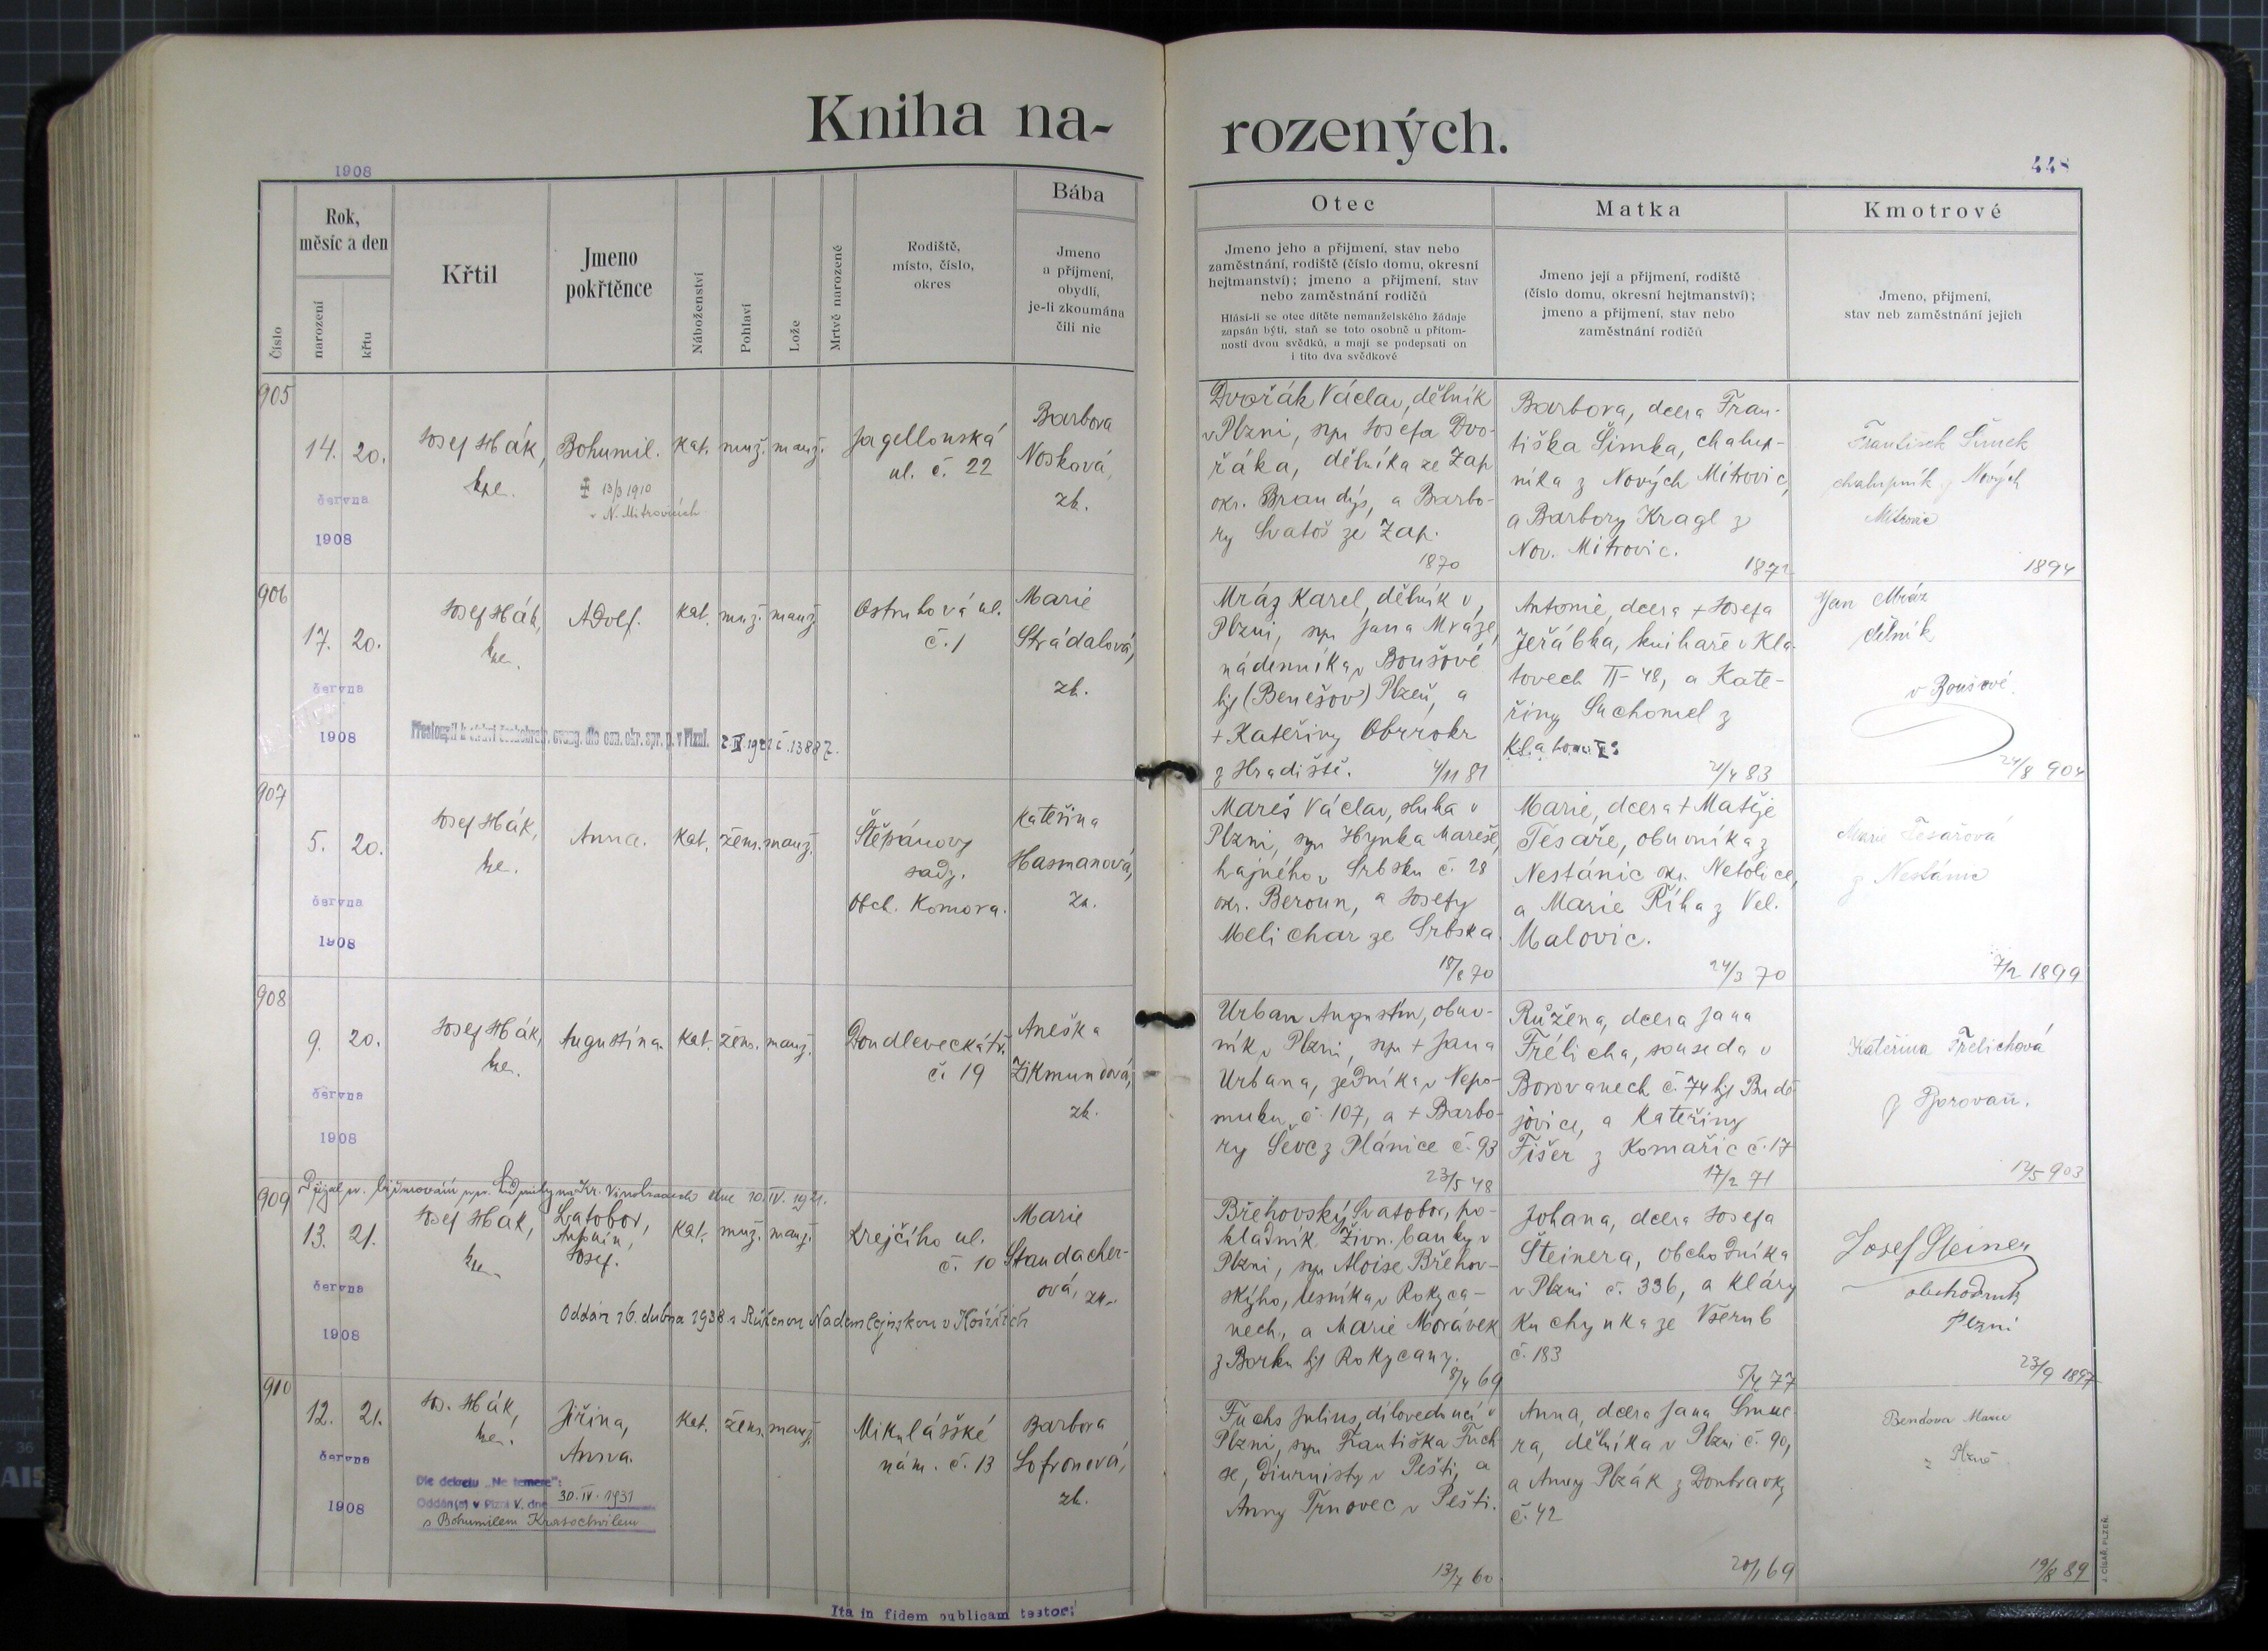 Kniha na-
rozených.
1908
448
Číslo
Rok,
měsíc a den
narození
křtu
Křtil
Jmeno
pokřtěnce
Náboženství
Pohlaví
Lože
Mrtvě narozené
Rodiště,
místo, číslo,
okres
Bába
Jmeno
a příjmení,
obydlí,
je-li zkoumána
čili nic
Otec
Jmeno jeho a přijmení, stav nebo
zaměstnání, rodiště (číslo domu, okresní
hejtmanství); jmeno a přijmení, stav
nebo zaměstnání rodičů
Hlásí-li se otec dítěte nemanželského žádaje
zapsán býti, staň se toto osobně u přítom-
nosti dvou svědků, a mají se podepsati on
i tito dva svědkové
Matka
Jmeno její a přijmení, rodiště
(číslo domu, okresní hejtmanství);
jmeno a přijmení, stav nebo
zaměstnání rodičů
Kmotrové
Jmeno, přijmení,
stav neb zaměstnání jejich
905
14. 20.
června
1908
Josef Hák,
Bohumil.
13/3 1910
v N. Mitrovicích
Kat. muž. manž.
Jagellonská
ul. č. 22
Barbora
Nosková,
zk.
Dvořák Václav, dělník
v Plzni, syn Josefa Dvo-
řáka, dělníka ze Zap
okr. Brandýs, a Barbo-
ry Svatoš ze Zap.
1870
Barbora, dcera Fran-
tiška Šimka, chalup-
níka z Nových Mitrovic,
a Barbory Kragl z
Nov. Mitrovic.
1872
František Šimek
chalupník z Nových
Mitrovic
1894
906
17. 20.
června
1908
Josef Hák,
Adolf.
Kat. muž. manž.
Ostruhová ul.
č. 1
Marie
Strádalová,
zk.
Přestoupil k církvi českobratr. evang. dle osn. okr. spr. p. v Plzni.
Mráz Karel, dělník v
Plzni, syn Jana Mráze,
nádenníka v Boušově
hjt (Benešov) Plzeň, a
+ Kateřiny
z Hradiště. 4/11 81
Antonie, dcera + Josefa
Jeřábka, knihaře v Kla-
tovech II-48, a Kate-
řiny Suchomel z
21/4 83
Jan Mráz
dělník
v Boušově.
24/8 904
907
5. 20.
června
1908
Josef Hák,
Anna.
Kat. žens. manž.
Štěpánovy
sady.
Obch. Komora.
Kateřina
Hasmanová,
zk.
Mareš Václav, sluha v
Plzni, syn Hynka Mareše,
hajného v Srbsku č. 28
okr. Beroun, a Josefy
Melichar ze Srbska.
18/8 70
Marie, dcera + Matěje
Tesaře, obuvníka z
Nestánic okr. Netolice,
a Marie Říha z Vel.
Malovic.
24/3 70
Marie Tesařová
z Nestánic
7/2 1899
908
9. 20.
června
1908
Josef Hák,
Augustina.
Kat. žens. manž.
Doudlevecká tř.
č. 19
Aneška
Zikmundová,
zk.
Urban Augustin, obuv-
ník v Plzni, syn + Jana
Urbana, zedníka v Nepo-
muku č. 107, a + Barbo-
ry Ševc z Plánice č. 93
23/5 48
Růžena, dcera Jana
Frélicha, souseda v
Borovanech č. 74 hjt Budě-
jovice, a Kateřiny
Fišer z Komařic č. 17
17/2 71
Kateřina Frelichová
z Borovan.
12/5 903
909
Přijal sv. biřmování Ludmily na Kr. Vinohradech dne 10. IV. 1921.
13. 21.
června
1908
Josef Hák,
Svatobor,
Antonín,
Josef.
Kat. muž. manž.
Krejčího ul.
č. 10
Marie
Standacher-
ová, zk.
Oddán 16. dubna 1938 s Růženou
Břehovský Svatobor, po-
kladník Živn. banky v
Plzni, syn Aloise Břehov-
ského, lesníka v Rokyca-
nech, a Marie Morávek
z Borku hjt Rokycany.
8/4 69
Johana, dcera Josefa
Šteinera, obchodníka
v Plzni č. 336, a Kláry
Kuchynka ze Všerub
č. 183
5/4 77
Josef Steiner
obchodník
Plzni
23/9 1897
910
12. 21.
června
1908
Jos. Hák,
Jiřina,
Anna.
Kat. žens. manž.
Mikulášské
nám. č. 13
Barbora
Lofronová,
zk.
Dle dekretu „Ne temere":
Oddán(a) v Plzni V. dne 30. IV. 1931
s Bohumilem Kratochvilem
Fuchs Julius, dílovedoucí v
Plzni, syn Františka Fuch-
se, diurnisty v Pešti, a
Anny Trnovec v Pešti.
13/7 60
Anna, dcera Jana
dělníka v Plzni č. 90,
a Anny Plzák z Doubravky
č. 42
20/1 69
Bendova Marie
z Plzně
19/8 89
Ita in fidem publicam testor:
J. CÍSAŘ, PLZEŇ.